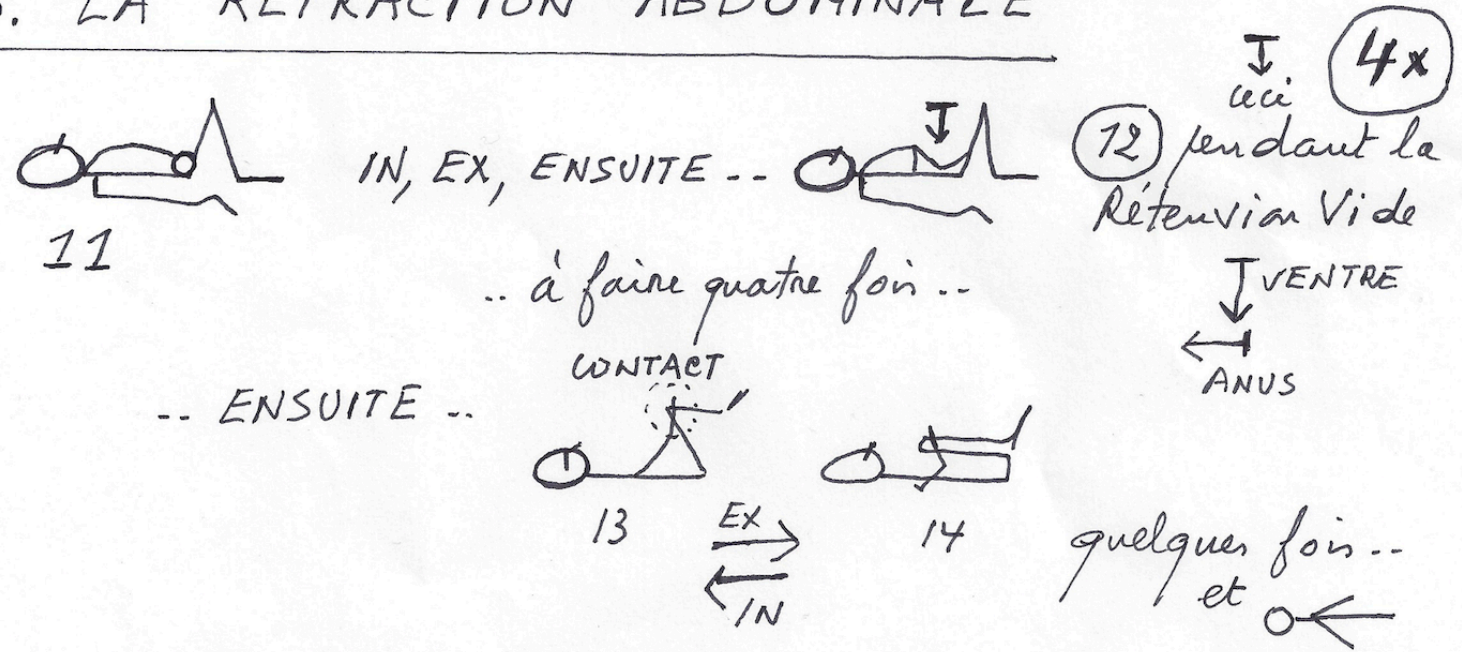 . LA RETRACTION ABDOMINALE
4x
ceci
IN, EX, ENSUITE --
12 pendant la
Rétenvion Vide
11
.. à faire quatre fois ..
VENTRE
ANUS
CONTACT
-- ENSUITE --
13
EX
IN
14
quelques fois --
et